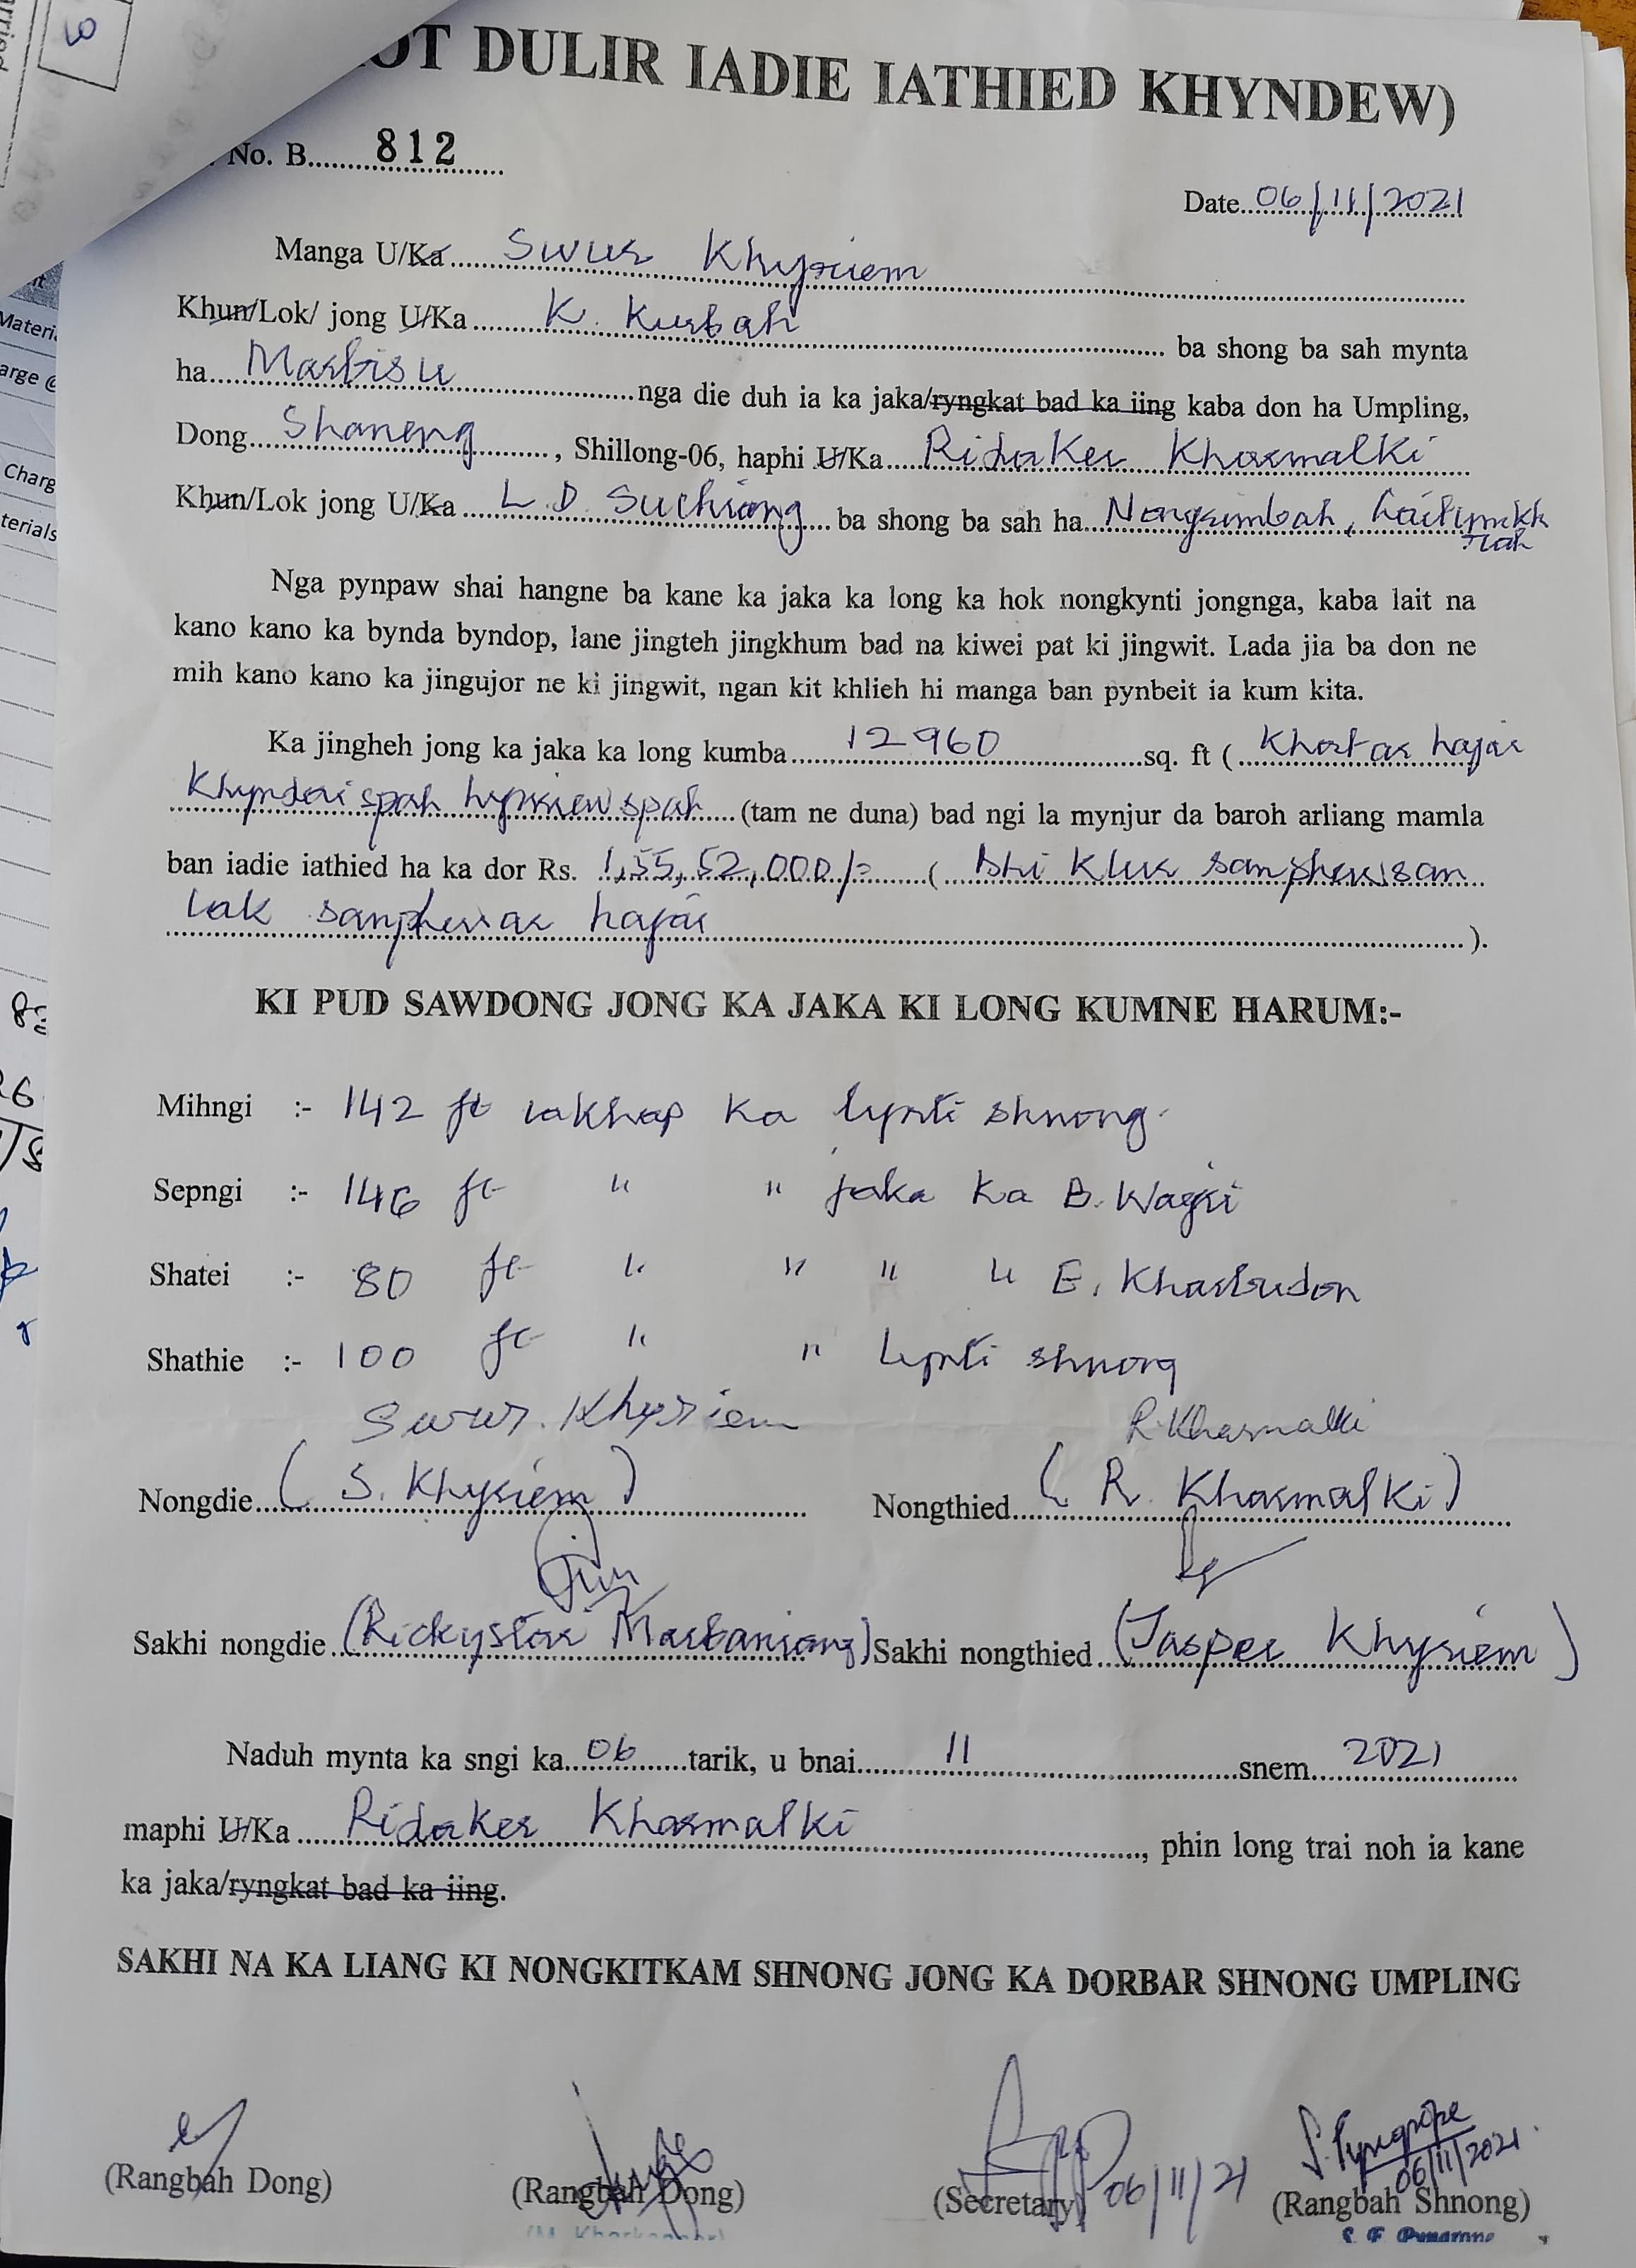 OT DULIR IADIE IATHIED KHYNDEW)
No. B....... 812
Date.. 06/11/2021
Manga U/Ka..... Swur Khyriem
Khun/Lok/ jong U/Ka....... K. Kurbah ........ ba shong ba sah mynta
ha.... Marbisu ........nga die duh ia ka jaka/ryngkat bad ka iing kaba don ha Umpling,
Dong.... Shaneng ........, Shillong-06, haphi U/Ka..... Ridaker Kharmalki
Khun/Lok jong U/Ka.... L.D. Suchiang ... ba shong ba sah ha.. Nongrimbah, Laitumkh
rah
Nga pynpaw shai hangne ba kane ka jaka ka long ka hok nongkynti jongnga, kaba lait na
kano kano ka bynda byndop, lane jingteh jingkhum bad na kiwei pat ki jingwit. Lada jia ba don ne
mih kano kano ka jingujor ne ki jingwit, ngan kit khlieh hi manga ban pynbeit ia kum kita.
Ka jingheh jong ka jaka ka long kumba....... 12960 ........sq. ft (.. Khatar hajar
Khyndai spah hynriew spah .... (tam ne duna) bad ngi la mynjur da baroh arliang mamla
ban iadie iathied ha ka dor Rs. 1,55,52,000/= ......(.. Shi Klur sanphew san
lak sanphew ar hajar ........).
KI PUD SAWDONG JONG KA JAKA KI LONG KUMNE HARUM:-
Mihngi :- 142 ft iakhap ka lynti shnong.
Sepngi :- 146 ft " " jaka ka B. Wagri
Shatei :- 80 ft " " " " E. Kharbudon
Shathie :- 100 ft " " lynti shnong
Swur. Khyriem R. Kharmalki
Nongdie... ( S. Khyriem ) Nongthied.... ( R. Kharmalki )
Sakhi nongdie... (Rickystar Marbaniang) Sakhi nongthied... (Jasper Khyriem)
Naduh mynta ka sngi ka... 06 ....tarik, u bnai........ 11 ........snem..... 2021
maphi U/Ka..... Ridaker Kharmalki ........, phin long trai noh ia kane
ka jaka/ryngkat bad ka iing.
SAKHI NA KA LIANG KI NONGKITKAM SHNONG JONG KA DORBAR SHNONG UMPLING
06/11/21 S. Pyngrope 06/11/2021
(Rangbah Dong) (Rangbah Dong) (Secretary) (Rangbah Shnong)